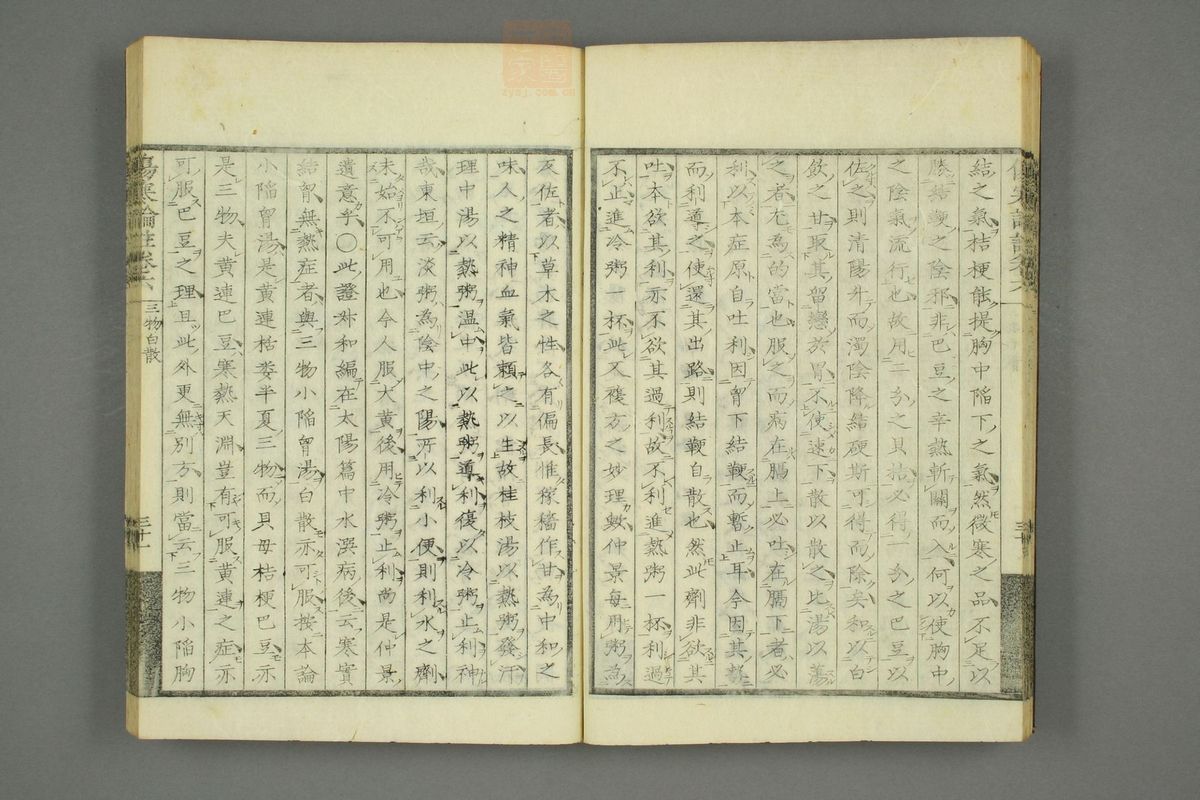 結之氣桔梗能提胸中陷下之氣然微寒之品不足以
勝結鞕之陰邪非巴豆之辛熱斬關而入何以使胸中
之陰氣流行也故用二分之貝拾必得一分之巴豆以
佐之則清陽升而濁陰降結硬斯可得而除矣和以白
飲之甘取其留戀於胃不使速下散以散之比湯以蕩
之者尤為的當也服之而病在膈上必吐在膈下者必
利以本症原自吐利因胷下結鞕而暫止耳今因其勢
而利導之使還其出路則結鞕自散也然此劑非欲其
吐本欲其利亦不欲其過利故不利進熱粥一杯利過
不止進冷粥一杯此又複方之妙理歟仲景每用粥為
反佐者以草木之性各有偏長惟稼穡作甘為中和之
味人之精神血氣皆賴之以生故桂枝湯以熱粥發汗
理中湯以熱粥温中此以熱粥導利復以冷粥止利神
哉東垣云淡粥為陰中之陽所以利小便則利水之劑
未始不可用也今人服大黃後用冷粥止利尚是仲景
遺意乎〇此證叔和編在太陽篇中水潠病後云寒實
結胷無熱症者與三物小陷胷湯白散亦可服按本論
小陷胷湯是黃連栝蔞半夏三物而貝母桔梗巴豆亦
是三物夫黃連巴豆寒熱天淵豈有可服黃連之症亦
可服巴豆之理且此外更無別方則當云三物小陷胸
傷寒論註卷六
三物白散
三十一
三十